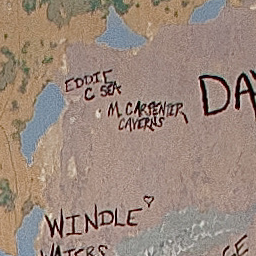 EDDIE
C SEA
M CARPENTER
CAVERNS
DA
WINDLE
WATERS
GE